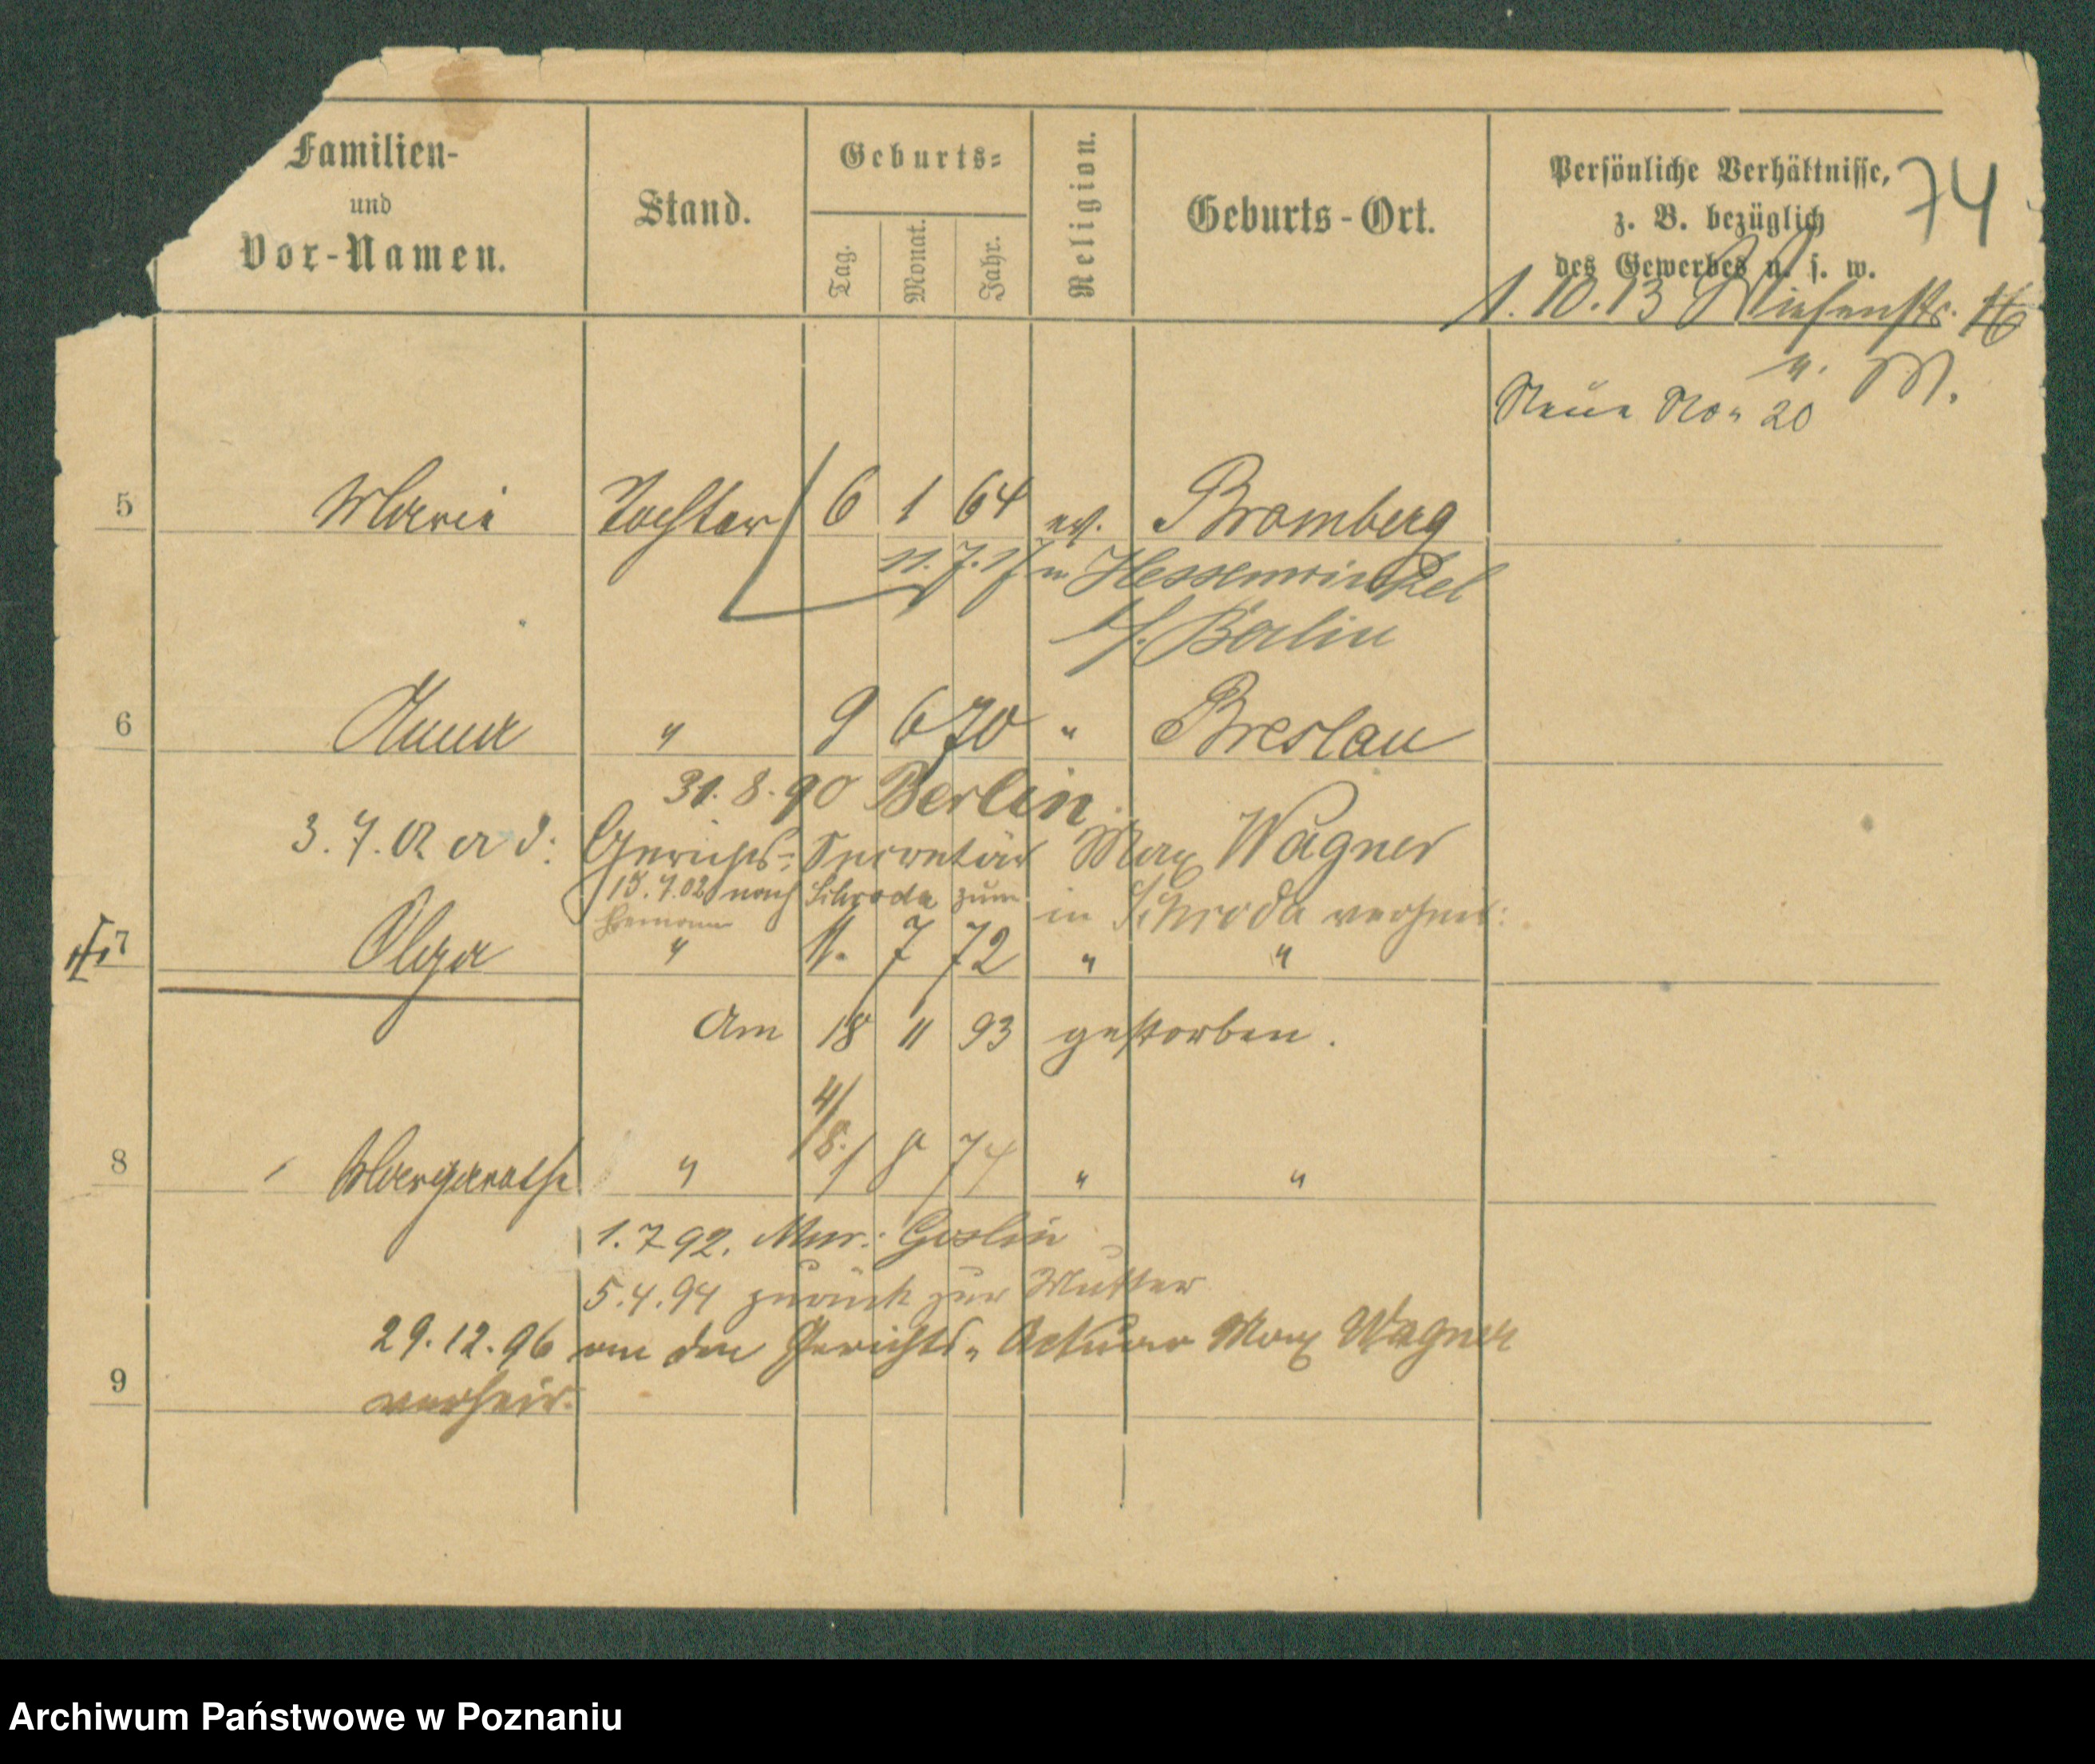 74
Familien-
und
Vor-Namen.
Stand.
Geburts-
Tag.
Monat.
Jahr.
Religion.
Geburts-Ort.
Persönliche Verhältnisse,
z. B. bezüglich
des Gewerbes u. s. w.
1.10.13 Wiesenstr. 16
M.
Neue No. 20
5 Marie Tochter 6 1 64 ev. Bromberg
11.7.17 n Hessenwinkel
b/. Berlin
6 Anna " 9 6 70 " Breslau
31.8.90 Berlin.
3.7.02 a d: Gerichts-Secretär Max Wagner
15.7.02 nach Schroda zum in Schroda verheir:
7 Olga " 11. 7 72 " "
Am 18 11 93 gestorben.
4/8.
8 Margarethe " 1 8 74 " "
1.7.92. Mur.: Goslin
5.4.94 zurück zur Mutter
29.12.96 an den Gerichts-Actuar Max Wagner
9 verheir.
Archiwum Państwowe w Poznaniu